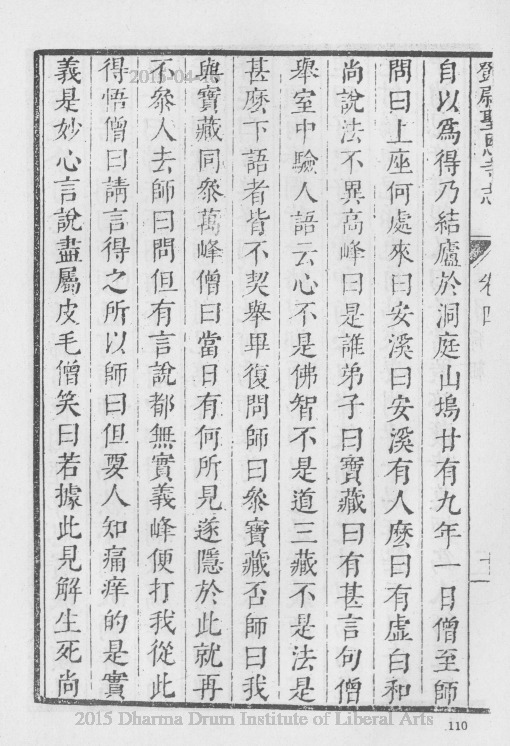 鄧尉聖恩寺志 卷四 十一
自以爲得乃結廬於洞庭山塢廿有九年一日僧至師
問曰上座何處來曰安溪曰安溪有人麽曰有虛白和
尚說法不異高峰曰是誰弟子曰寶藏曰有甚言句僧
舉室中驗人語云心不是佛智不是道三藏不是法是
甚麽下語者皆不契舉畢復問師曰叅寶藏否師曰我
與寶藏同叅萬峰僧曰當日有何所見遂隱於此就再
不叅人去師曰問但有言說都無實義峰便打我從此
得悟僧曰請言得之所以師曰但要人知痛痒的是實
義是妙心言說盡屬皮毛僧笑曰若據此見解生死尚
2015-04-16
2015 Dharma Drum Institute of Liberal Arts
110